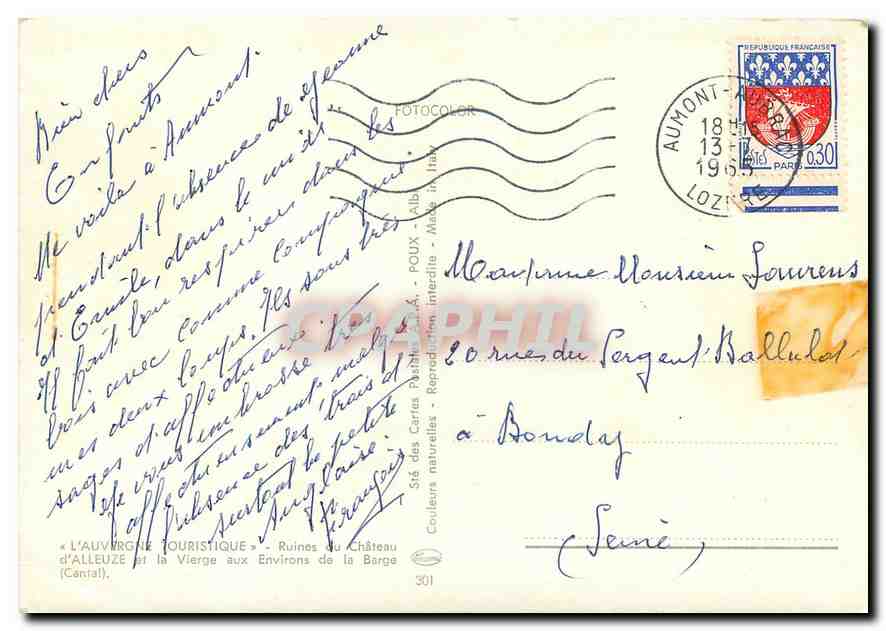 Bien chers
Enfants
Me voilà à Aumont.
pendant l'absence de Jeanne
et Emile, dans le midi.
Il fait bon respirer dans les
bois avec comme compagnons
mes deux loups. Ils sont très
sages et affectueux
Je vous embrasse très
affectueusement malgré
l'absence des trois et
surtout la petite
Anglaise.
François
FOTOCOLOR
REPUBLIQUE FRANÇAISE
POSTES 0,30
PARIS
AUMONT-AUBRAC
18H
13-7
1965
LOZERE
Madame Monsieur Laurens
20 rue du Sergent Ballulat
à Bondy
(Seine)
Sté des Cartes Postales A.P.A. - POUX - Albi
Couleurs naturelles - Reproduction interdite - Made in Italy
CPAPHIL
« L'AUVERGNE TOURISTIQUE » - Ruines du Château
d'ALLEUZE et la Vierge aux Environs de la Barge
(Cantal).
301